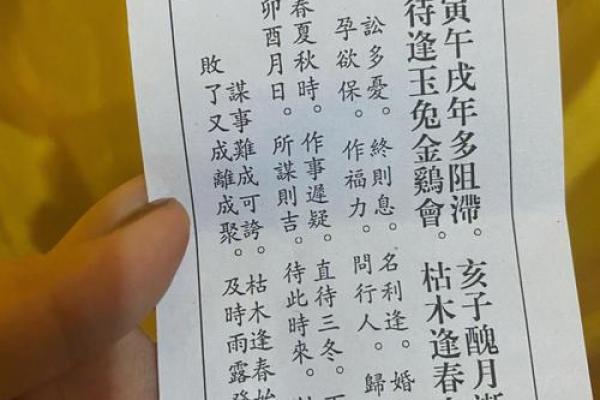 寅午戌年多阻滯。亥子醜月漸
待逢玉兔金鷄會。枯木逢春
訟多憂。終則息。名利逢。婚
孕欲保。作福力。問行人。歸
春夏秋時。作事遲疑。直待三冬。
卯酉月日。所謀則吉。待此時來。
謀事難成可誇。枯木逢春始
敗了又成離成聚。及時雨露